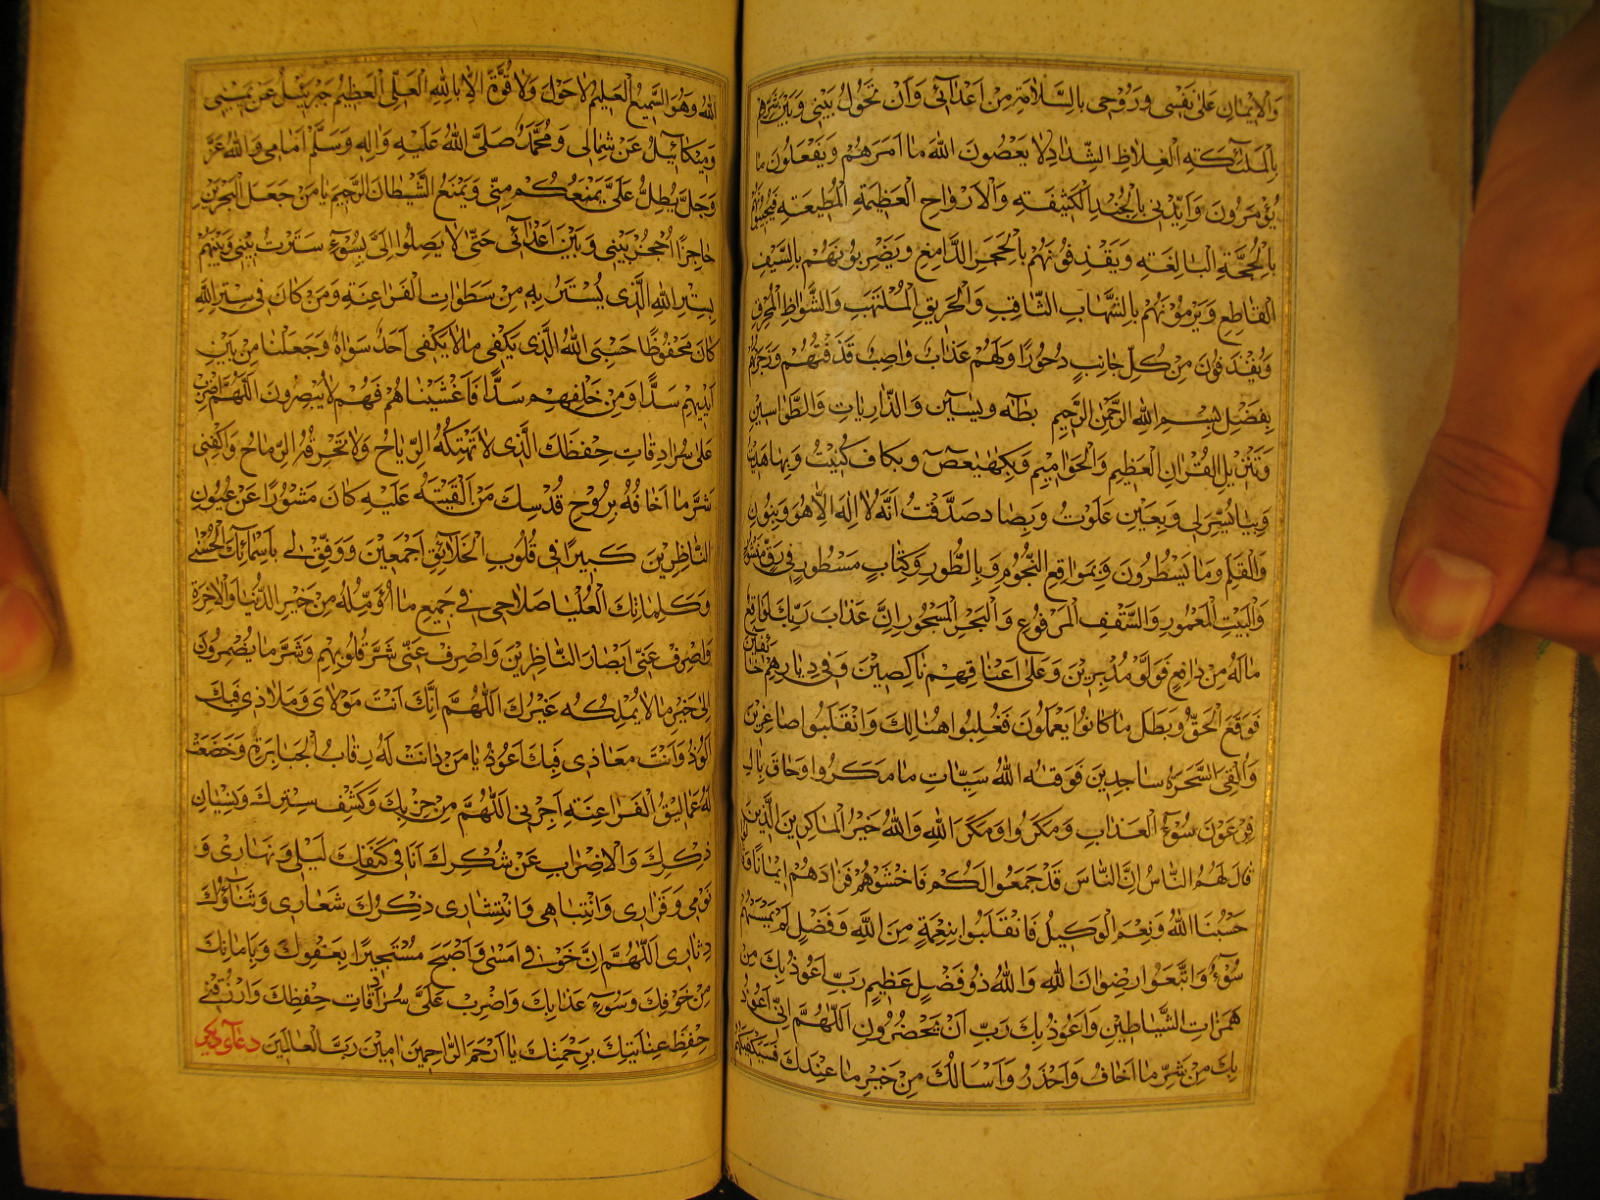 وَالْاِیْمٰانِ عَلٰی نَفْسی وَرُوْحی بِالسَّلٰامَةِ مِنْ اَعْدٰآئی وَاَنْ تَحُوْلَ بَیْنی وَبَیْنَ شَرِّهِمْ
بِالْمَلٰٓئِكَتِهِ الْغِلٰاظِ الشِّدٰادِ لٰا یَعْصُونَ اللّٰهَ مٰا اَمَرَهُمْ وَیَفْعَلُونَ مٰا
یُؤْمَرُونَ وَاَیِّدْنی بِالْجُنْدِ الْكَثیفَتِهِ وَالْاَرْوٰاحِ الْعَظیمَةِ الْمُطیعَتِهِ
بِالْحُجَّةِ الْبٰالِغَتِهِ وَیَقْذِفُونَهُمْ بِالْحَجَرِ الدّٰامِغِ وَیَضْرِبُونَهُمْ بِالسَّیْفِ
الْقٰاطِعِ وَیَرْمُوْنَهُمْ بِالشَّهٰابِ الثّٰاقِبِ وَالْحَریقِ الْمُلْتَهَبِ وَالشَّوٰاظِ الْمُحْرِقِ
وَیُقْذَفُونَ مِنْ كُلِّ جٰانِبٍ دُحُورًا وَلَهُمْ عَذٰابٌ وٰاصِبٌ قَذَفْتُهُمْ وَزَجَرْتُهُمْ
بِفَضْلِ بِسْمِ اللّٰهِ الرَّحْمٰنِ الرَّحیمِ بِطٰهٰ وَیٰسٓیٓن وَالذّٰارِیٰاتِ وَالطَّوٰاسینِ
وَتَنْزیلِ الْقُرْاٰنِ الْعَظیمِ وَالْحَوٰامیمِ وَبِكٓهٰیٰعٓصٓ وَبِكٰافٍ كُفیتُ وَبِهٰا هُدیتُ
وَبِیٰا یُسِّرَ لی وَبِعَیْنٍ عَلَوْتُ وَبِصٰادٍ صَدَّقْتُ اَنَّهُ لٰا اِلٰهَ اِلّٰا هُوَ وَبِنُونٍ
وَالْقَلَمِ وَمٰا یَسْطُرُونَ وَبِمَوٰاقِعِ النُّجُومِ وَبِالطُّورِ وَكِتٰابٍ مَسْطُورٍ فی رَقٍّ مَنْشُورٍ
وَالْبَیْتِ الْمَعْمُورِ وَالسَّقْفِ الْمَرْفُوعِ وَالْبَحْرِ الْمَسْجُورِ اِنَّ عَذٰابَ رَبِّكَ لَوٰاقِعٌ
مٰا لَهُ مِنْ دٰافِعٍ فَوَلَّوْ مُدْبِرینَ وَعَلٰی اَعْنٰاقِهِمْ نٰاكِصینَ وَفی دِیٰارِهِمْ خٰائِفینَ
فَوَقَعَ الْحَقُّ وَبَطَلَ مٰا كٰانُوا یَعْمَلُونَ فَغُلِبُوا هُنٰالِكَ وَانْقَلَبُوا صٰاغِرینَ
وَاُلْقِیَ السَّحَرَةُ سٰاجِدینَ فَوَقٰیهُ اللّٰهُ سَیِّئٰاتِ مٰا مَكَرُوا وَحٰاقَ بِاٰلِ
فِرْعَوْنَ سُوٓءُ الْعَذٰابِ وَمَكَرُوا وَمَكَرَ اللّٰهُ وَاللّٰهُ خَیْرُ الْمٰاكِرینَ اَلَّذینَ
قٰالَ لَهُمُ النّٰاسُ اِنَّ النّٰاسَ قَدْ جَمَعُوا لَكُمْ فَاخْشَوْهُمْ فَزٰادَهُمْ ایمٰانًا وَقٰالُوا
حَسْبُنَا اللّٰهُ وَنِعْمَ الْوَكیلُ فَانْقَلَبُوا بِنِعْمَةٍ مِنَ اللّٰهِ وَفَضْلٍ لَمْ یَمْسَسْهُمْ
سُوٓءٌ وَاتَّبَعُوا رِضْوٰانَ اللّٰهِ وَاللّٰهُ ذُو فَضْلٍ عَظیمٍ رَبِّ اَعُوذُ بِكَ مِنْ
هَمَزٰاتِ الشَّیٰاطینِ وَاَعُوذُ بِكَ رَبِّ اَنْ یَحْضُرُونِ اَللّٰهُمَّ اِنّی اَعُوذُ
بِكَ مِنْ شَرِّ مٰا اَخٰافُ وَاَحْذَرُ وَاَسْاَلُكَ مِنْ خَیْرِ مٰا عِنْدَكَ فَسَیَكْفیكَهُمُ
اللّٰهُ وَهُوَ السَّمیعُ الْعَلیمُ لٰا حَوْلَ وَلٰا قُوَّةَ اِلّٰا بِاللّٰهِ الْعَلِیِّ الْعَظیمِ جَبْرَئیلُ عَنْ یَمینی
وَمیكٰآئیلُ عَنْ شِمٰالی وَمُحَمَّدٌ صَلَّی اللّٰهُ عَلَیْهِ وَاٰلِهِ وَسَلَّمَ اَمٰامی وَاللّٰهُ عَزَّ
وَجَلَّ یُطِلُّ عَلَیَّ یَمْنَعُكُمْ مِنّی وَیَمْنَعُ الشَّیْطٰانَ الرَّجیمَ یٰا مَنْ جَعَلَ الْبَحْرَیْنِ
حٰاجِزًا اُحْجُزْ بَیْنی وَبَیْنَ اَعْدٰآئی حَتّٰی لٰا یَصِلُوا اِلَیَّ بِسُوٓءٍ سَتَرْتُ بَیْنی وَبَیْنَهُمْ
بِسِتْرِ اللّٰهِ الَّذی یُسْتَتَرُ بِهِ مِنْ سَطَوٰاتِ الْفَرٰاعِنَةِ وَمَنْ كٰانَ فی سِتْرِ اللّٰهِ
كٰانَ مَحْفُوظًا حَسْبِیَ اللّٰهُ الَّذی یَكْفی مٰا لٰا یَكْفی اَحَدٌ سِوٰاهُ وَجَعَلْنٰا مِنْ بَیْنِ
اَیْدیهِمْ سَدًّا وَمِنْ خَلْفِهِمْ سَدًّا فَاَغْشَیْنٰاهُمْ فَهُمْ لٰا یُبْصِرُونَ اَللّٰهُمَّ اضْرِبْ
عَلَیَّ سُرٰادِقٰاتِ حِفْظِكَ الَّذی لٰا تَهْتِكُهُ الرِّیٰاحُ وَلٰا تَخْرِقُهُ الرِّمٰاحُ وَاكْفِنی
شَرَّ مٰا اَخٰافُهُ بِرُوْحِ قُدْسِكَ مَنْ اَلْقَیْتَهُ عَلَیْهِ كٰانَ مَسْتُورًا عَنْ عُیُونِ
النّٰاظِرینَ كَبیرًا فی قُلُوبِ الْخَلٰآئِقِ اَجْمَعینَ وَوَفِّقْ لی بِاَسْمٰآئِكَ الْحُسْنٰی
وَكَلِمٰاتِكَ الْعُلْیٰا صَلٰاحی فی جَمیعِ مٰا اُؤَمِّلُهُ مِنْ خَیْرِ الدُّنْیٰا وَالْاٰخِرَةِ
وَاصْرِفْ عَنّی اَبْصٰارَ النّٰاظِرینَ وَاصْرِفْ عَنّی شَرَّ قُلُوبِهِمْ وَشَرَّ مٰا یُضْمِرُونَ
اِلٰی خَیْرِ مٰا لٰا یُمْلِكُهُ غَیْرُكَ اَللّٰهُمَّ اِنَّكَ اَنْتَ مَوْلٰایَ وَمَلٰاذی فَبِكَ
اَلُوذُ وَاَنْتَ مَعٰاذی فَبِكَ اَعُوذُ یٰا مَنْ دٰانَتْ لَهُ رِقٰابُ الْجَبٰابِرَةِ وَخَضَعَتْ
لَهُ عَمٰالیقُ الْفَرٰاعِنَةِ اَجِرْنی اَللّٰهُمَّ مِنْ خِزْیِكَ وَكَشْفِ سِتْرِكَ وَنِسْیٰانِ
ذِكْرِكَ وَالْاِضْرٰابِ عَنْ شُكْرِكَ اَنَا فی كَنَفِكَ لَیْلی وَنَهٰاری وَ
نَوْمی وَقَرٰاری وَانْتِبٰاهی وَانْتِشٰاری ذِكْرُكَ شَعٰاری وَثَنٰآؤُكَ
دِثٰاری اَللّٰهُمَّ اِنَّ خَوْفی اَمْسٰی وَاَصْبَحَ مُسْتَجیرًا بِعَفْوِكَ وَبِاَمٰانِكَ
مِنْ خَوْفِكَ وَسُوٓءِ عَذٰابِكَ وَاضْرِبْ عَلَیَّ سُرٰادِقٰاتِ حِفْظِكَ وَارْزُقْنی
حِفْظَ عِنٰایَتِكَ بِرَحْمَتِكَ یٰا اَرْحَمَ الرّٰاحِمینَ اٰمینَ رَبَّ الْعٰالَمینَ دعآی دیگر